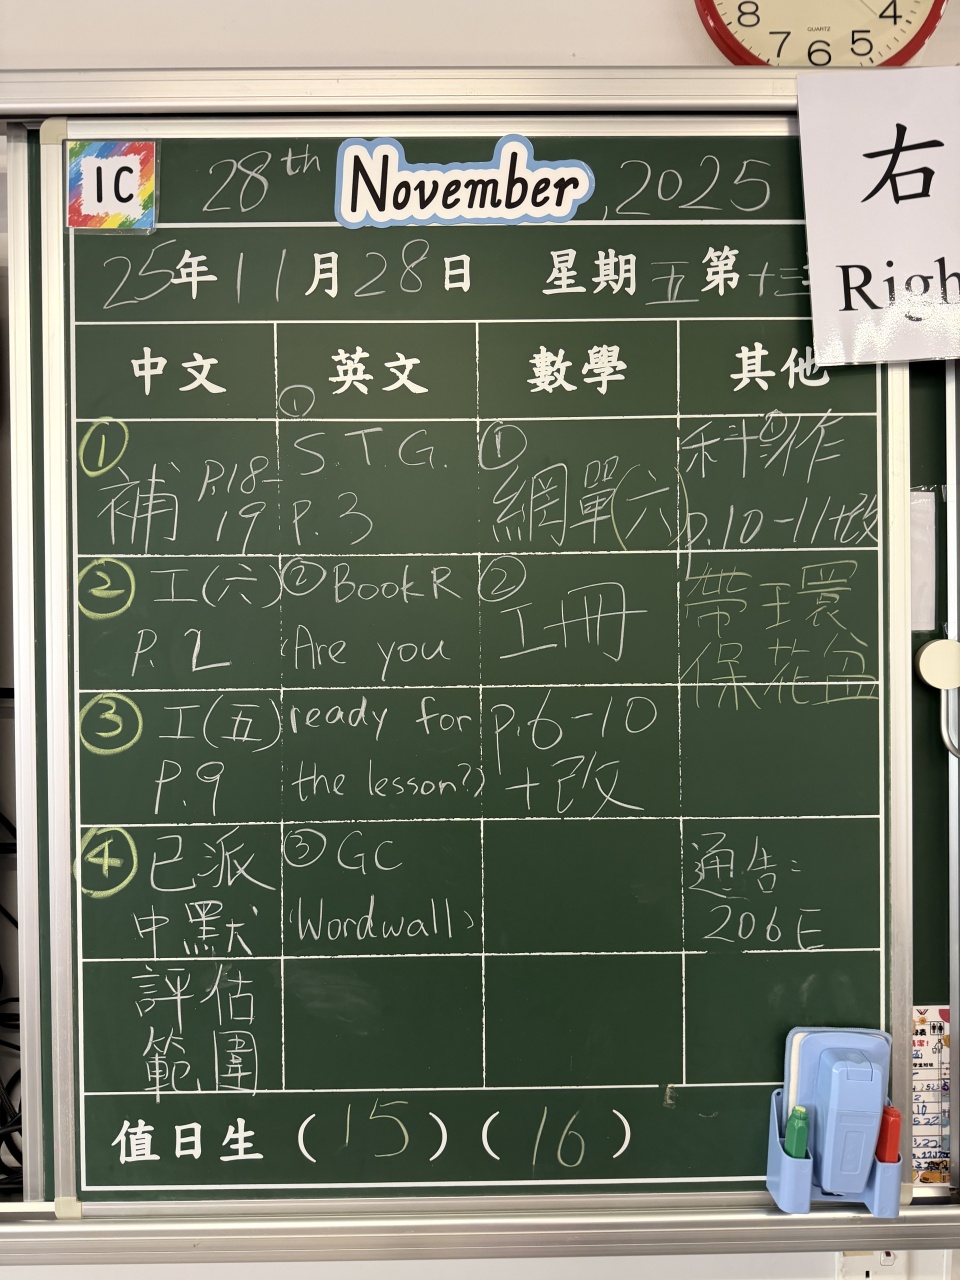 8 7 6 5 4
QUARTZ
右
Righ
1C 28th November, 2025
25年11月28日 星期五第十三
中文 英文 數學 其他
① 補 P.18-19
② 工(六) P.2
③ 工(五) P.9
④ 已派
中默
評估
範圍
① S.T.G.
P.3
② Book R
(Are you
ready for
the lesson?)
③ GC
(Wordwall)
①
網單(六)
②
工冊
p.6-10
+改
① 科作
p.10-11+改
帶環
保花盆
通告:
206E
值日生 (15) (16)